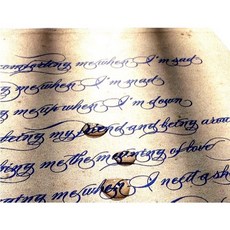 comforting me when I'm sad
me when I'm mad
me up when I'm down
being my friend and being arou
me the meaning of love
me when I need a sh